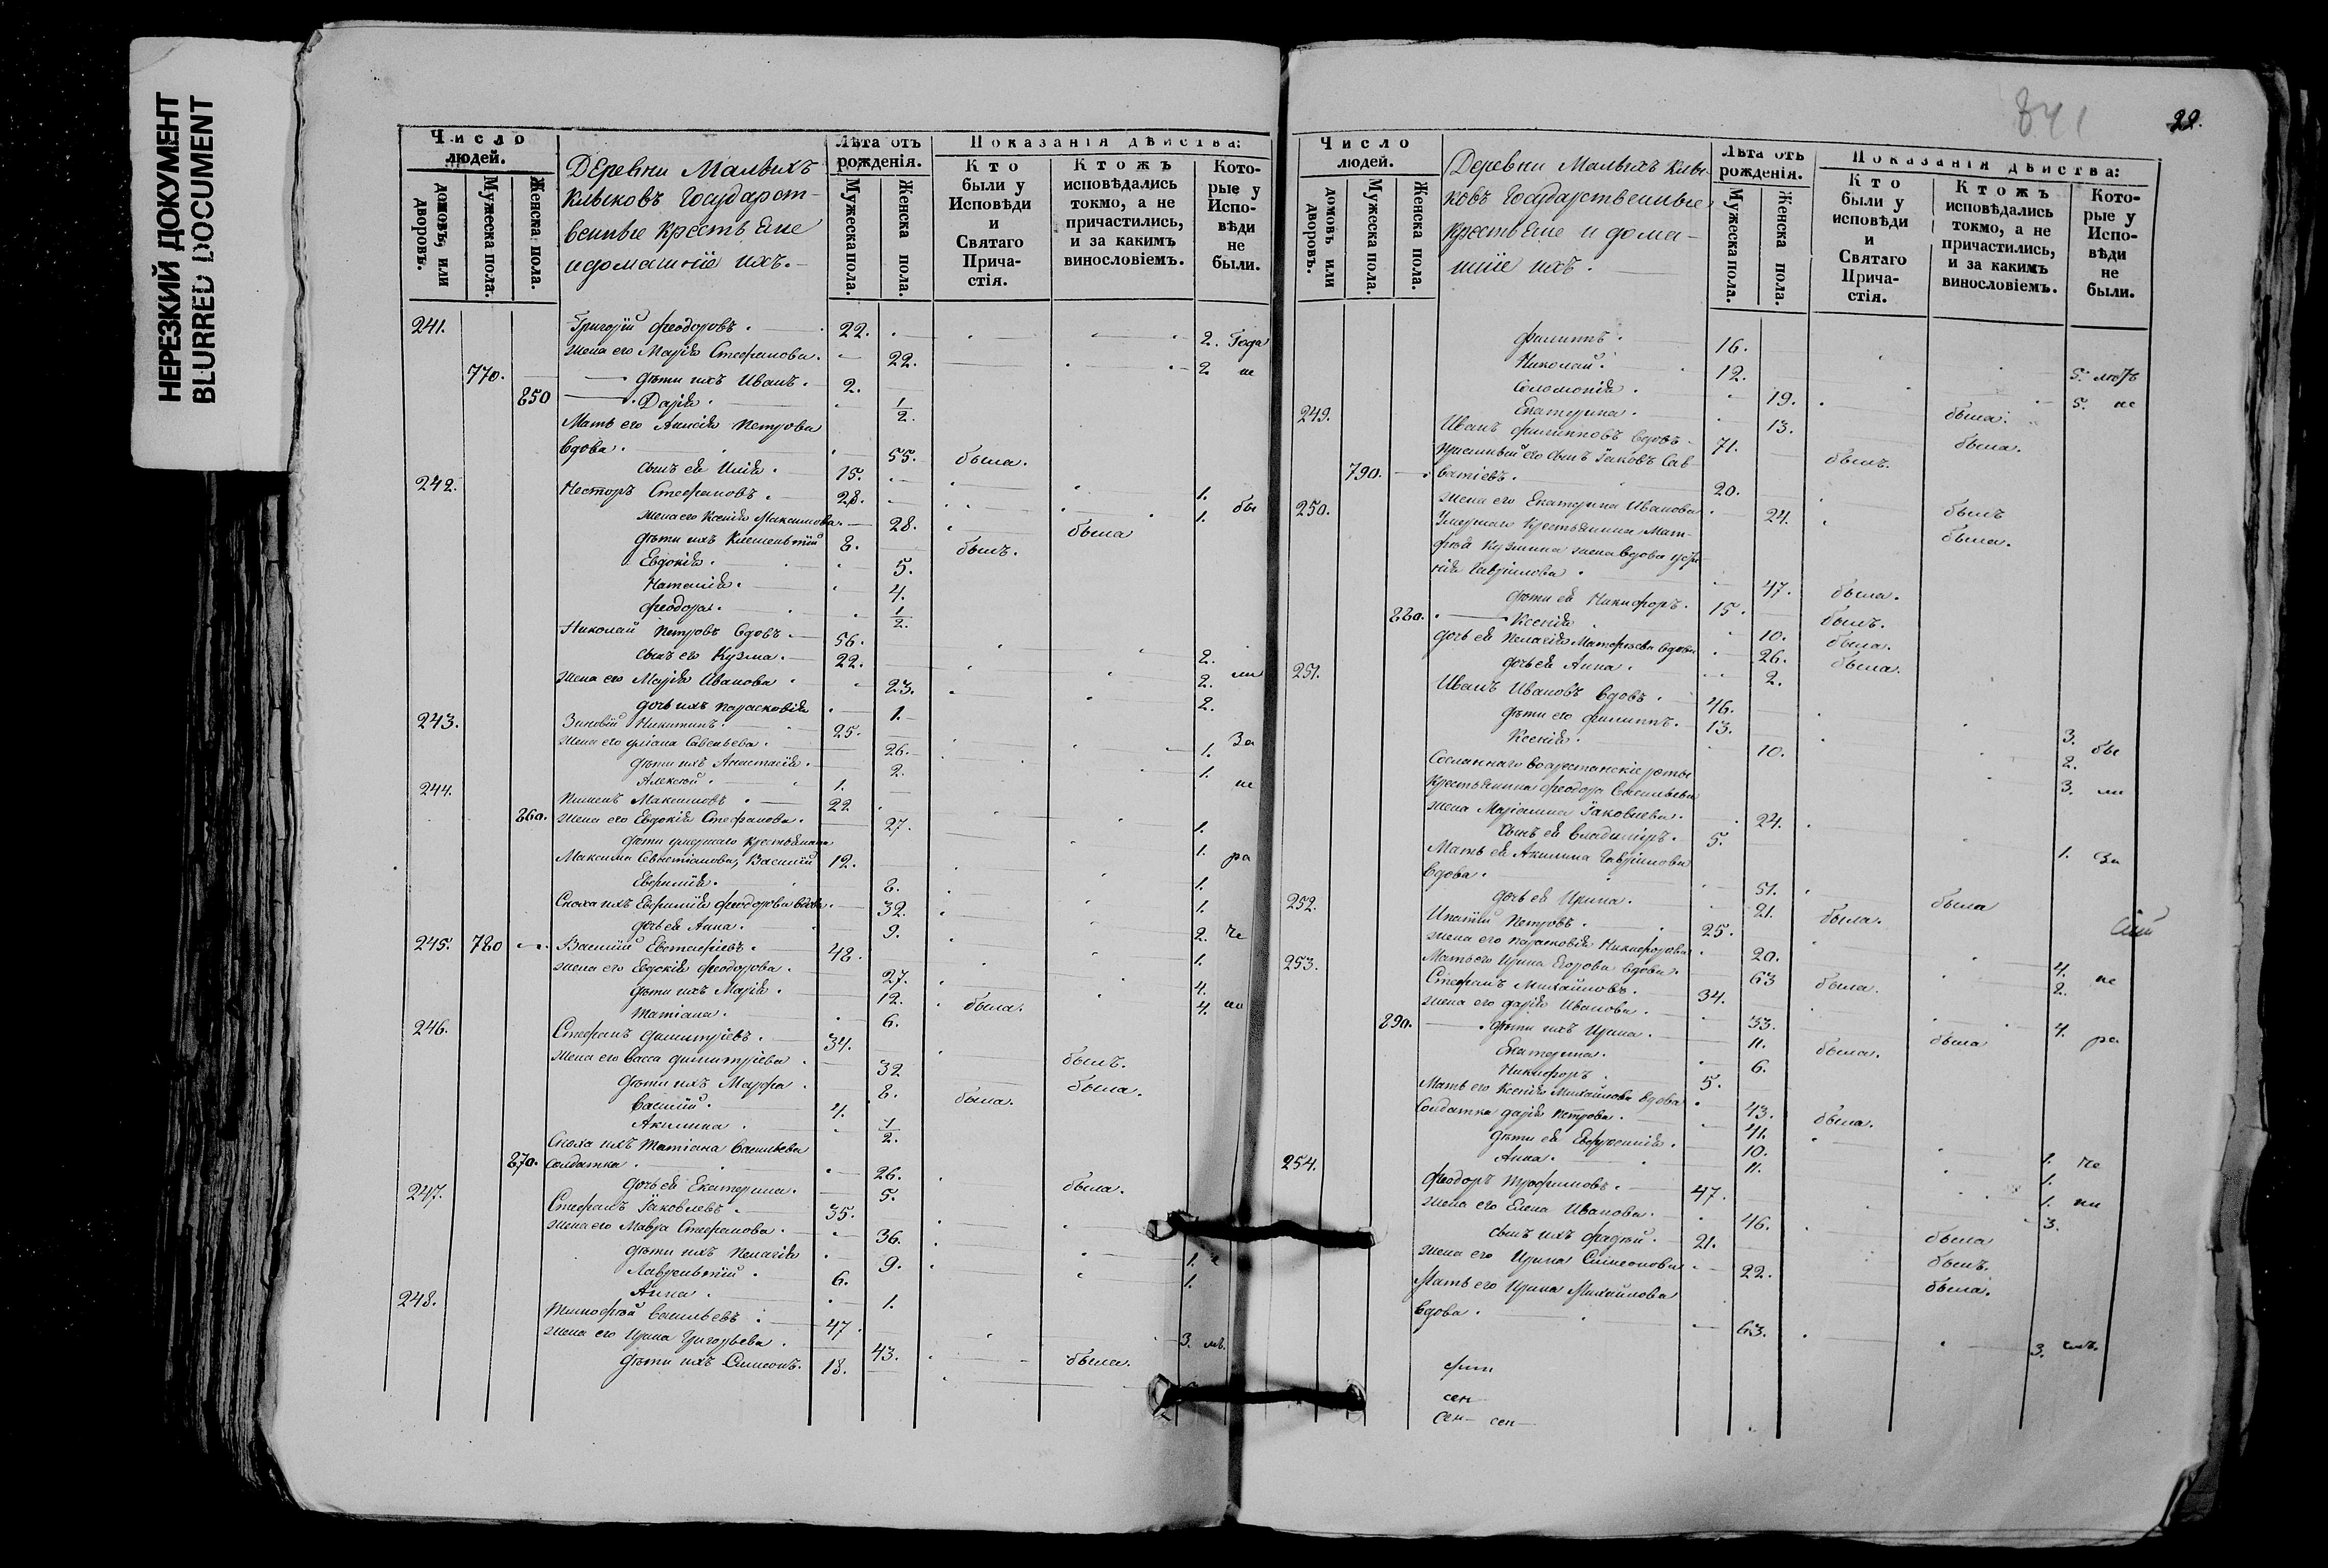 НЕРЕЗКИЙ ДОКУМЕНТ
BLURRED DOCUMENT
Число людей.
домовъ, или дворовъ.
Мужеска пола.
Женска пола.
Деревни Малыхъ
Клыковъ Государст-
венные крестьяне
и домашніе ихъ.
Лѣта отъ рожденія.
Мужеска пола.
Женска пола.
Показанія дѣйства:
Кто были у Исповѣди и Святаго Прича-стія.
Ктожъ исповѣдались токмо, а не причастились, и за какимъ винословіемъ.
Кото-рые у Испо-вѣди не были.
241. Григорій Феодоровъ. 22. 2. Года
жена его Марія Стефанова. 22. 2 не
770. дѣти ихъ Иванъ. 2.
850 Дарія. 1/2.
Мать его Анисія Петрова
вдова. 55. была.
сынъ ея Илія. 15.
242. Несторъ Стефановъ. 28. 1. бы
жена его Ксенія Максимова. 28. была 1.
дѣти ихъ Климентій 8. былъ.
Евдокія. 5.
Наталія. 4.
Феодора. 1/2.
Николай Петровъ вдовъ. 56. 2.
сынъ его Кузма. 22. 2. ли
жена его Марія Иванова. 23. 2.
дочь ихъ Парасковія 1.
243. Зиновій Никитинъ. 25. 1. За
жена его Уліана Савельева. 26. 1.
дѣти ихъ Анастасія. 2.
Алексѣй. 1. не
244. Пименъ Максимовъ. 22 1.
860. жена его Евдокія Стефанова. 27. 1. ра
дѣти умершаго крестьянина
Максима Севастіанова, Василій 12. 1.
Евфимія. 8. 1.
Сноха ихъ Евфимія Феодорова вдова. 32. 2. че
дочь ея Анна. 9. 1.
245. 780 Василій Евстафіевъ. 48. 4.
жена его Евдокія Феодорова. 27. 4. но
дѣти ихъ Марія. 12. была.
Татіана. 6.
246. Стефанъ Димитріевъ. 34. былъ.
жена его Васса Димитріева. 32 была.
дѣти ихъ Марфа. 8. была.
Василій. 4.
Акилина. 1/2.
Сноха ихъ Татіана Васильева
870. солдатка. 26. была.
дочь ея Екатерина. 5.
247. Стефанъ Іаковлевъ. 35.
жена его Мавра Стефанова. 36. 1.
дѣти ихъ Пелагія 9. 1.
Лаврентій. 6.
Анна. 1.
248. Тимофѣй Васильевъ. 47. 3. лѣ.
жена его Ирина Григорьева. 43. была.
дѣти ихъ Симеонъ. 18.
841
22.
Число людей.
домовъ или дворовъ.
Мужеска пола.
Женска пола.
Деревни Малыхъ Клы-
ковъ Государственные
крестьяне и дома-
шніе ихъ.
Лѣта отъ рожденія.
Мужеска пола.
Женска пола.
Показанія дѣйства:
Кто были у исповѣди и Святаго Прича-стія.
Ктожъ исповѣдались токмо, а не причастились, и за какимъ винословіемъ.
Кото-рые у Испо-вѣди не были.
Филиппъ. 16. 5.
Николай. 12. 5. не
Соломонія. 19. была.
Екатерина. 13. была.
249. Иванъ Филипповъ вдовъ. 71. былъ.
Пріемный его сынъ Іаковъ Сав-
790. ватіевъ. 20. былъ
жена его Екатерина Иванова 24. была.
250. Умершаго крестьянина Мат-
фѣя Кузмина жена вдова
Гаврилова. 47. была.
дѣти ея Никифоръ. 15. былъ.
880. Ксенія. 10. была.
дочь ея Пелагія Матфѣева вдова 26. была.
дочь ея Анна. 2.
251. Иванъ Ивановъ вдовъ. 46. 3. бы
дѣти его Филиппъ. 13. 2.
Ксенія. 10. 3. ли
Сосланнаго въ арестанскіе роты
крестьянина Феодора Васильева
жена Маріамна Іаковлева. 24. 1. За
сынъ ея Владиміръ. 5.
Мать ея Акилина Гаврилова
вдова. 51. была
дочь ея Ирина. 21. была.
252. Ипатій Петровъ. 25. 4. не
жена его Парасковія Никифорова. 20. 2.
Мать его Ирина Егорова вдова. 63 была.
253. Стефанъ Михайловъ. 34. 4. ра
жена его Дарія Иванова. 33. была
890. дѣти ихъ Ирина. 11. была.
Екатерина. 6.
Никифоръ. 5.
Мать его Ксенія Михайлова вдова 43. была.
Солдатка Дарія Петрова. 41. 1. че
дѣти ея Евфросинія. 10. 1.
Анна. 11. 1. ни
254. Феодоръ Трофимовъ. 47. 3.
жена его Елена Иванова. 46. была
сынъ ихъ Фадѣй. 21. былъ.
жена его Ирина Симеонова 22. была.
Мать его Ирина Михайлова
вдова. 63. 3.